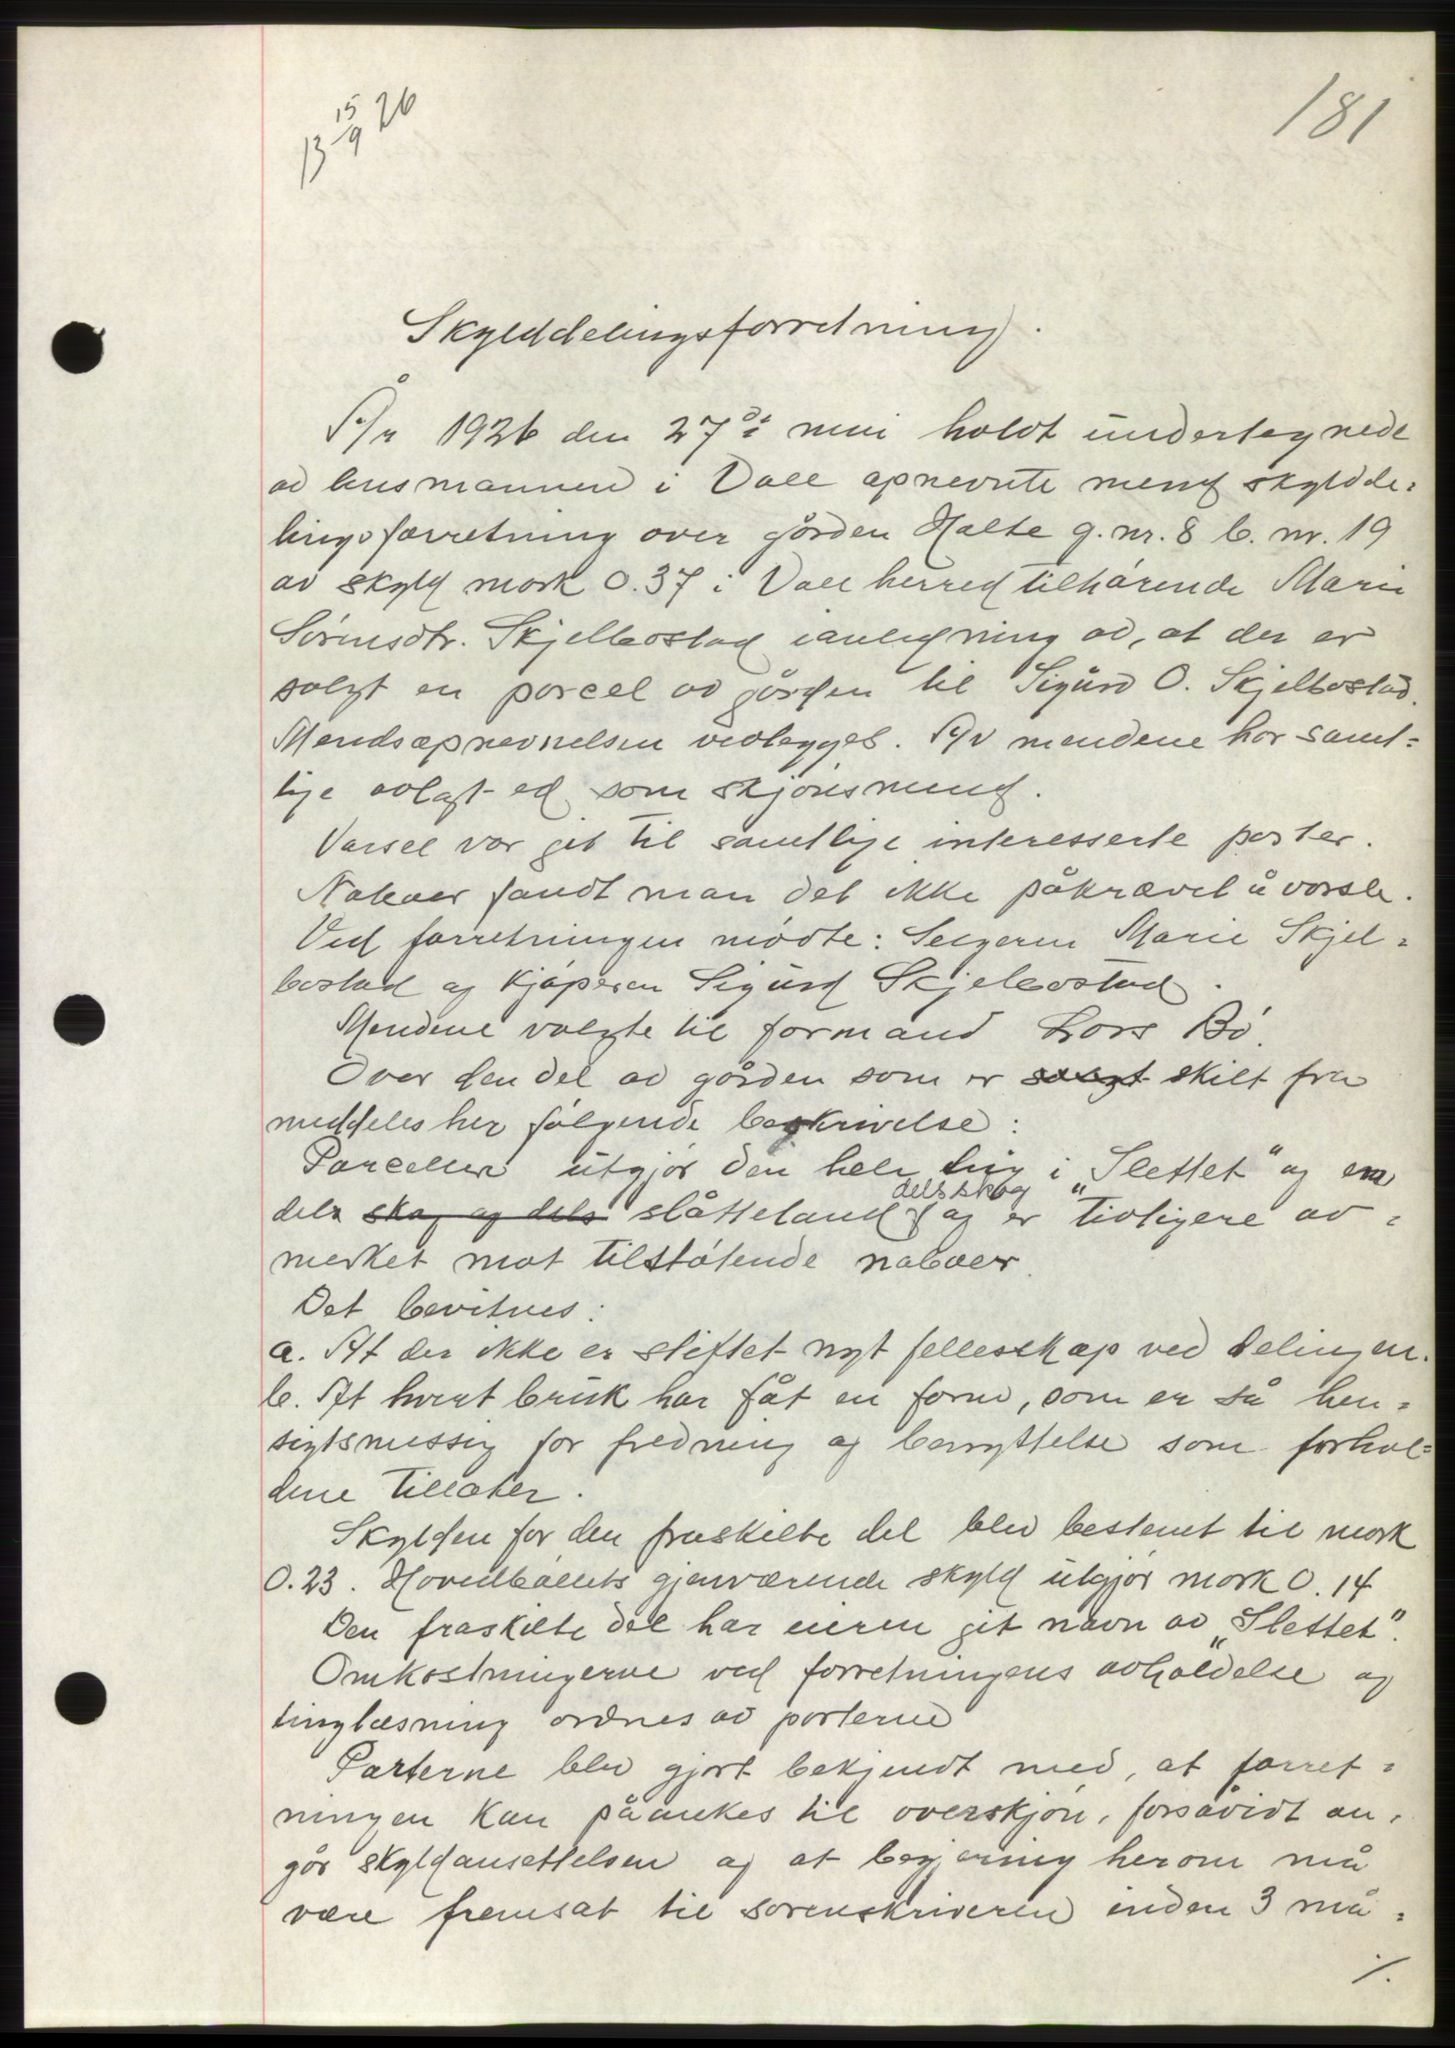 13 15/9 26
181
Skylddelingsforretning.
År 1926 den 27de mai holdt undertegnede
av lensmannen i Vall opnevnte menn skyldde=
lingsforretning over gården Halte g.nr. 8 b.nr. 19
av skyld mark 0.37 i Vall herred tilhørende Marie
Sörensdtr. Skjelbostad i anledning av, at der er
solgt en parcel av gården til Sigurd O. Skjelbostad.
Mendsopnevnelsen vedlegges. Av mendene har samt=
lige avlagt ed som skjønsmend.
Varsel var git til samtlige interesserte parter.
Naboer fandt man det ikke påkrævet å varsle.
Ved forretningen mødte: Selgeren Marie Skjel=
bostad og kjøperen Sigurd Skjelbostad.
Mendene valgte til formand Lars Bø.
Over den del av gården som er solgt skilt fra
meddeles her følgende beskrivelse:
Parcellen utgjør den hele teig i „Slettet" og er
dels skog og dels slåtteland dels skog og er tidligere av=
merket mot tilstøtende naboer.
Det bevitnes:
a. At der ikke er stiftet nyt fellesskap ved delingen.
b. At hvert bruk har fåt en form, som er så hen=
sigtsmessig for fredning og benyttelse som forhol=
dene tillater.
Skylden for den fraskilte del blev bestemt til mark
0.23. Hovedbølets gjenværende skyld utgjør mark 0.14
Den fraskilte del har eieren git navn av „Slettet".
Omkostningerne ved forretningens avholdelse og
tinglæsning ordnes av parterne
Parterne blev gjort bekjendt med, at forret=
ningen kan påankes til overskjøn, forsåvidt an=
går skyldansettelsen og at begjæring herom må
være fremsat til sorenskriveren inden 3 må=
./.